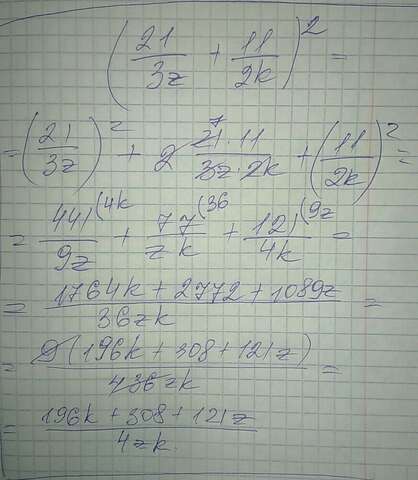 (21/3z + 11/2k)^2 =
= (21/3z)^2 + 2 21·11/3z·2k + (11/2k)^2 =
= 441/9z (4k + 77/zk (36 + 121/4k (9z =
= 1764k + 2772 + 1089z/36zk =
= 9(196k + 308 + 121z)/4 36zk =
= 196k + 308 + 121z/4zk.